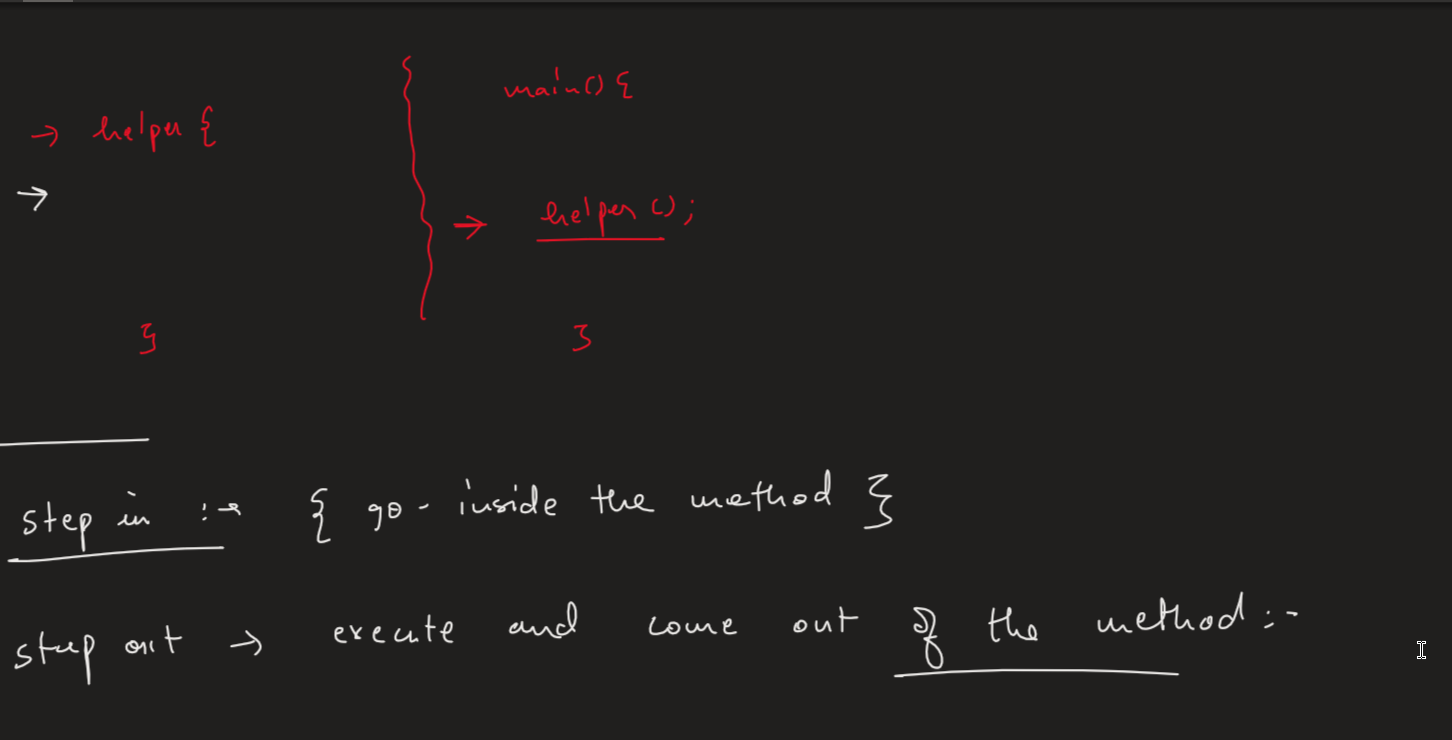 main() {
→ helper {
→
→ helper ();
}
}
step in :→ { go - inside the method }
step out → execute and come out of the method :-